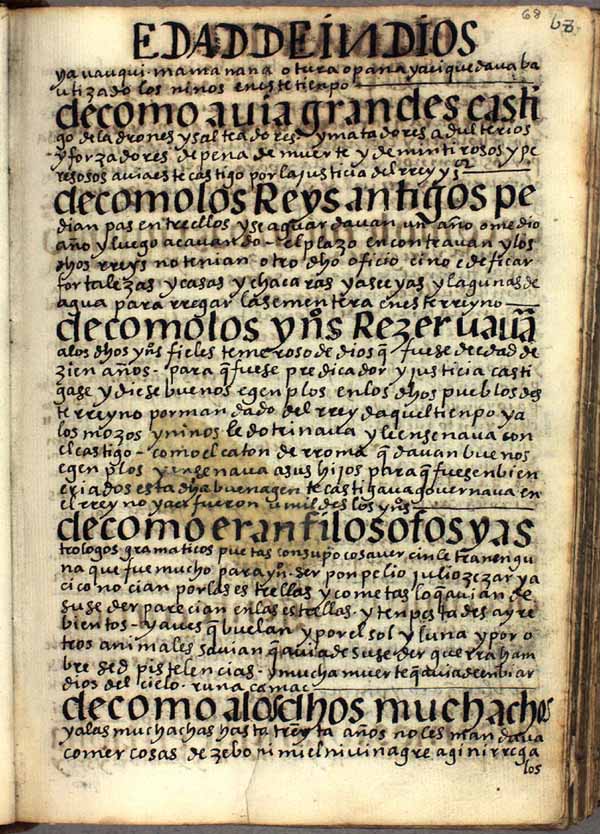 68 68
EDAD DE INDIOS
yauauqui mamanana otura o pana yaciquedauaba
utizado los ninos en este tienpo
de como auia grandes casti
go de ladrones y salteadores y matadores adulterios
y forzadores de pena de muerte y de mintirosos y pe
resosos auia este castigo por la justicia del rrey ys
de como los Reys antigos pe
dian pas entre ellos y se aguardauan un año o medio
año y luego acauando el plazo encontrauan y los
dhos rreys no tenian otro dho oficio cino edeficar
fortalezas y casas y chacaras y asecyas y lagunas de
agua para rregar la sementera en este rreyno
de como los yns Rezeruauā
a los dhos yns fieles temeroso de dios q̄ fuese de edad de
zien años para q̄ fuese predicador y justicia casti
gase y diese buenos egenplos en los dhos pueblos des
te rreyno por mandado del rrey de aquel tienpo ya
los mozos y ninos le dotrinaua y le ensenaua con
el castigo como el caton de rroma q̄ dauan buenos
egenplos y ensenaua a sus hijos para q̄ fuesen bien
criados esta dha buena gente castigaua gouernaua en
el rreyno ya fueron umildes los yns
de como eran filosofos y as
trologos gramaticos puetas con su poco saver cin letra nengu
na que fue mucho para yn ser ponpelio julio zezar ya
ci conocian por las estrellas y cometas lo q̄ auian de
suseder parecian en las estrellas y tenpestades ayre
bientos y aues q̄ buelan y por el sol y luna y por o
tros animales sauian q̄ auia de suseder guerra ham
bre sed pistelencias y mucha muerte q̄ auia de enbiar
dios del cielo runa camac
de como a los dhos muchachos
y a las muchachas hasta treynta años no les mandaua
comer cosas de zebo ni miel ni uinagre agi ni rrega
los